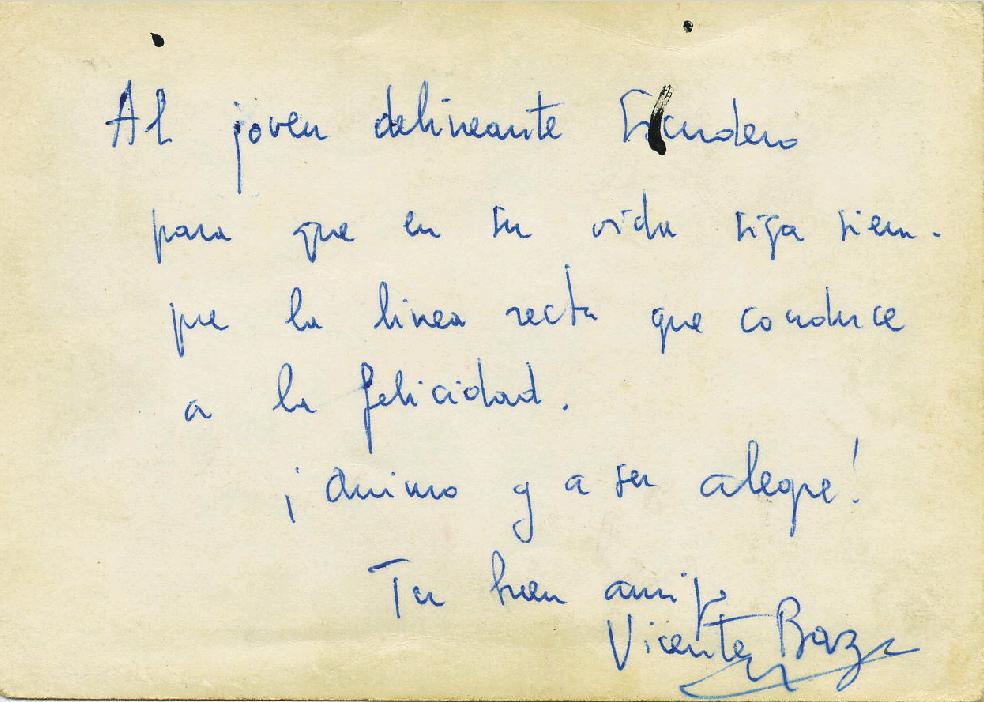 Al joven delineante Escudero
para que en su vida siga siem-
pre la linea recta que conduce
a la felicidad.
¡Animo y a ser alegre!
Tu buen amigo
Vicente Baza